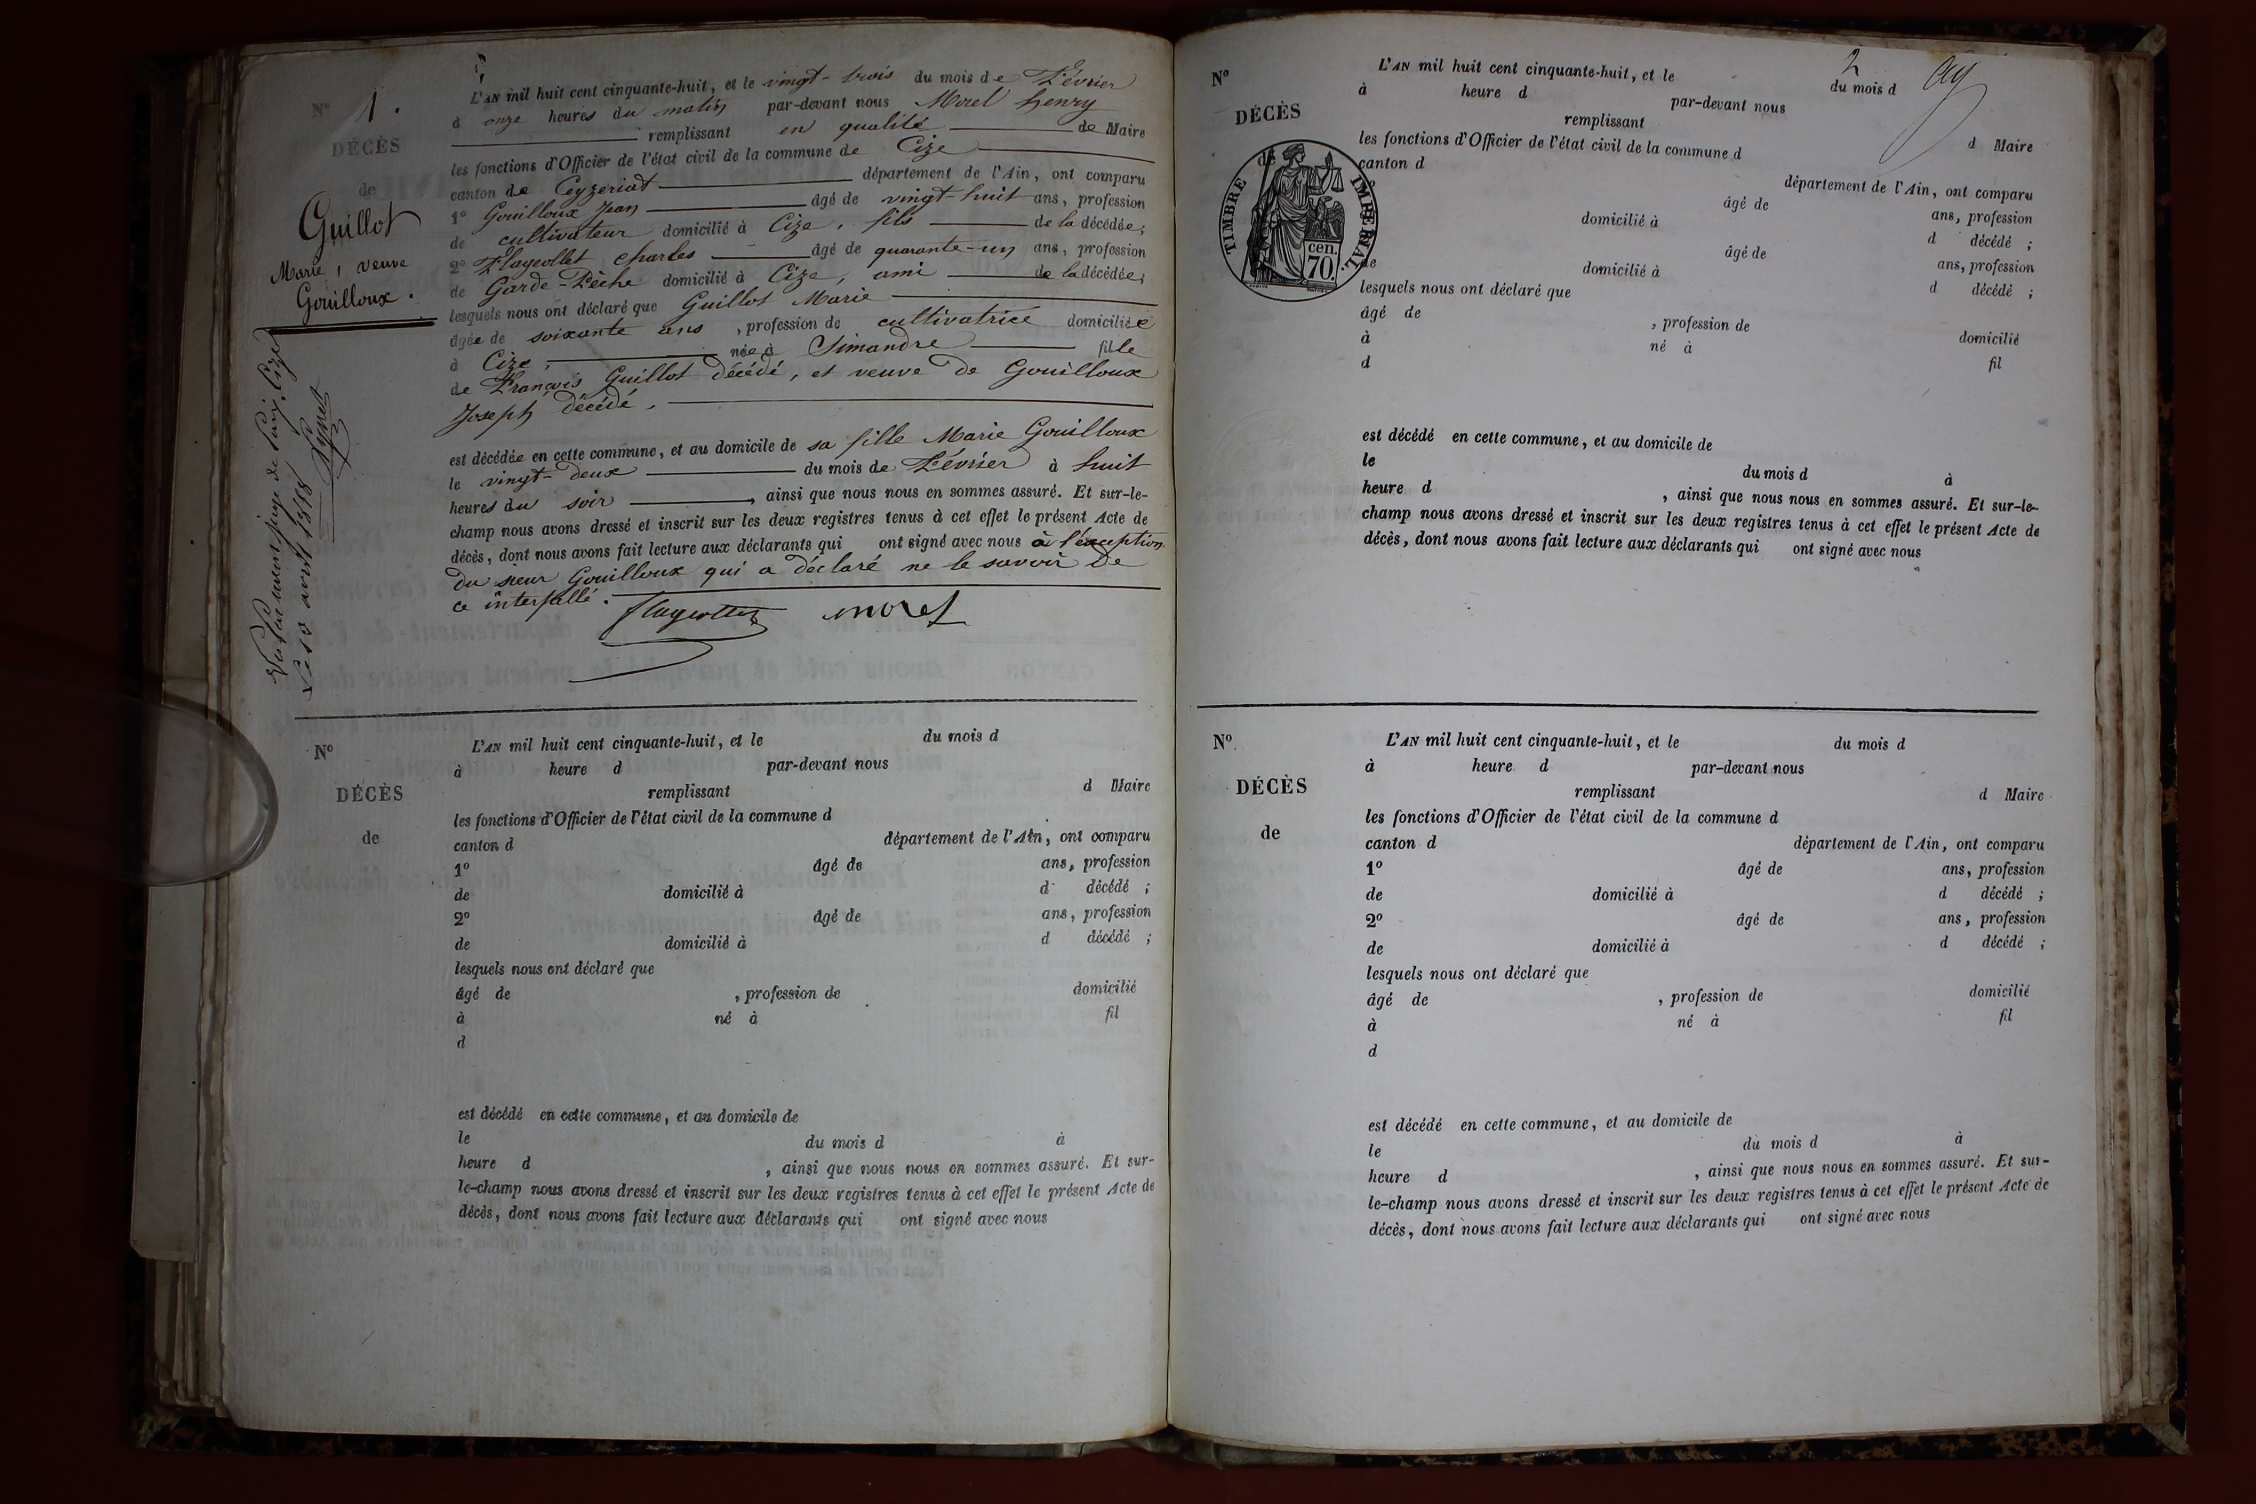 N° 1.
DÉCÈS
de
Guillot
Marie, veuve
Gouilloux.
L'AN mil huit cent cinquante-huit, et le vingt-trois du mois de Février
à onze heures du matin par-devant nous Morel henry
remplissant en qualité de Maire
les fonctions d'Officier de l'état civil de la commune de Cize
canton de Ceyzeriat département de l'Ain, ont comparu
1° Gouilloux Jean âgé de vingt-huit ans, profession
de cultivateur domicilié à Cize, fils de la décédée;
2° Flageollet Charles âgé de quarante-un ans, profession
de Garde-Pêche domicilié à Cize, ami de la décédée;
lesquels nous ont déclaré que Guillot Marie
âgée de soixante ans, profession de cultivatrice domiciliée
à Cize, née à Simandre fille
de François Guillot décédé, et veuve de Gouilloux
Joseph décédé.
est décédée en cette commune, et au domicile de sa fille Marie Gouilloux
le vingt-deux du mois de Février à huit
heures du soir, ainsi que nous nous en sommes assuré. Et sur-le-
champ nous avons dressé et inscrit sur les deux registres tenus à cet effet le présent Acte de
décès, dont nous avons fait lecture aux déclarants qui ont signé avec nous à l'exception
du sieur Gouilloux qui a déclaré ne le savoir De
ce interpellé.
flageollet morel
juge de Paix, Cize
Le 10 avril 1858
N°
DÉCÈS
de
L'AN mil huit cent cinquante-huit, et le du mois d
à heure d par-devant nous
remplissant d Maire
les fonctions d'Officier de l'état civil de la commune d
canton d département de l'Ain, ont comparu
1° âgé de ans, profession
de domicilié à d décédé ;
2° âgé de ans, profession
de domicilié à d décédé ;
lesquels nous ont déclaré que
âgé de , profession de domicilié
à né à fil
d
est décédé en cette commune, et au domicile de
le du mois d à
heure d , ainsi que nous nous en sommes assuré. Et sur-
le-champ nous avons dressé et inscrit sur les deux registres tenus à cet effet le présent Acte de
décès, dont nous avons fait lecture aux déclarants qui ont signé avec nous
2
N°
DÉCÈS
de
TIMBRE IMPÉRIAL.
70 cen.
L'AN mil huit cent cinquante-huit, et le du mois d
à heure d par-devant nous
remplissant d Maire
les fonctions d'Officier de l'état civil de la commune d
canton d département de l'Ain, ont comparu
âgé de ans, profession
domicilié à d décédé ;
âgé de ans, profession
de domicilié à d décédé ;
lesquels nous ont déclaré que
âgé de , profession de domicilié
à né à fil
d
est décédé en cette commune, et au domicile de
le du mois d à
heure d , ainsi que nous nous en sommes assuré. Et sur-le-
champ nous avons dressé et inscrit sur les deux registres tenus à cet effet le présent Acte de
décès, dont nous avons fait lecture aux déclarants qui ont signé avec nous
N°
DÉCÈS
de
L'AN mil huit cent cinquante-huit, et le du mois d
à heure d par-devant nous
remplissant d Maire
les fonctions d'Officier de l'état civil de la commune d
canton d département de l'Ain, ont comparu
1° âgé de ans, profession
de domicilié à d décédé ;
2° âgé de ans, profession
de domicilié à d décédé ;
lesquels nous ont déclaré que
âgé de , profession de domicilié
à né à fil
d
est décédé en cette commune, et au domicile de
le du mois d à
heure d , ainsi que nous nous en sommes assuré. Et sur-
le-champ nous avons dressé et inscrit sur les deux registres tenus à cet effet le présent Acte de
décès, dont nous avons fait lecture aux déclarants qui ont signé avec nous